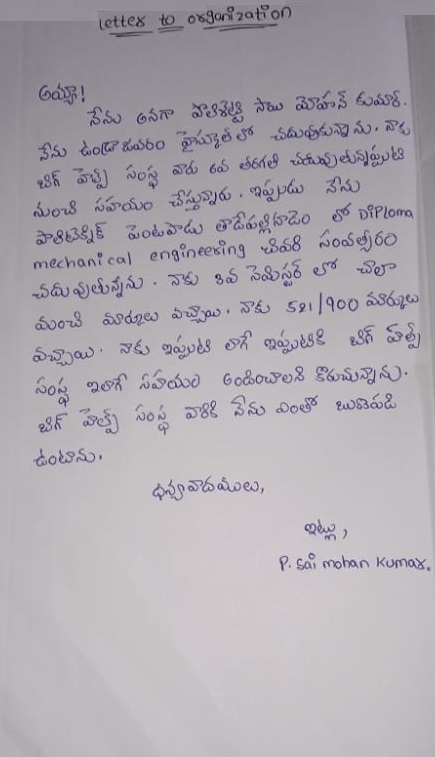 letter to organization
అయ్యా!
నేను అనగా పొలిశెట్టి సాయి మోహన్ కుమార్.
నేను ఉండ్రాజవరం హైస్కూల్ లో చదువుకున్నాను. నాకు
బిగ్ హెల్ప్ సంస్థ వారు 6వ తరగతి చదువుతున్నప్పుటి
నుంచి సహయం చేస్తున్నారు. ఇప్పుడు నేను
పాలిటెక్నిక్ పెంటపాడు తాడేపల్లిగూడెం లో Diploma
mechanical engineering చివరి సంవత్సరం
చదువుతున్నేను. నాకు 3వ సెమిస్టర్ లో చాలా
మంచి మార్కులు వచ్చాయి. నాకు 521/900 మార్కులు
వచ్చాయి. నాకు ఇప్పుటి లాగే ఇప్పుటికి బిగ్ హెల్ప్
సంస్థ ఇలాగే సహయం అందించాలని కొరుచున్నాను.
బిగ్ హెల్ప్ సంస్థ వారికి నేను ఎంతో బుణపడి
ఉంటాను.
ధన్యవాదములు,
ఇట్లు,
P. Sai mohan Kumar.